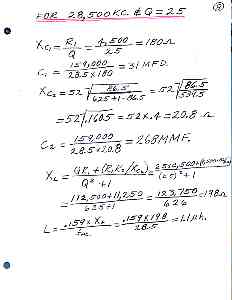 FOR 28,500 KC. & Q = 25
XC1 = R1/Q = 4,500/25 = 180Ω
C1 = 159,000/28.5x180 = 31 MFD.
XC2 = 52√86.5/625+1-86.5 = 52√86.5/539.5
= 52√.1605 = 52x.4 = 20.8 Ω
C2 = 159,000/28.5x20.8 = 268 MMF.
XL = QR1+(R1R2/XC2)/Q²+1 =
= 112,500+11,250/625+1 = 123,750/626 = 198Ω
L = .159xXL/Fmc = .159x198/28.5 = 1.1 μh.